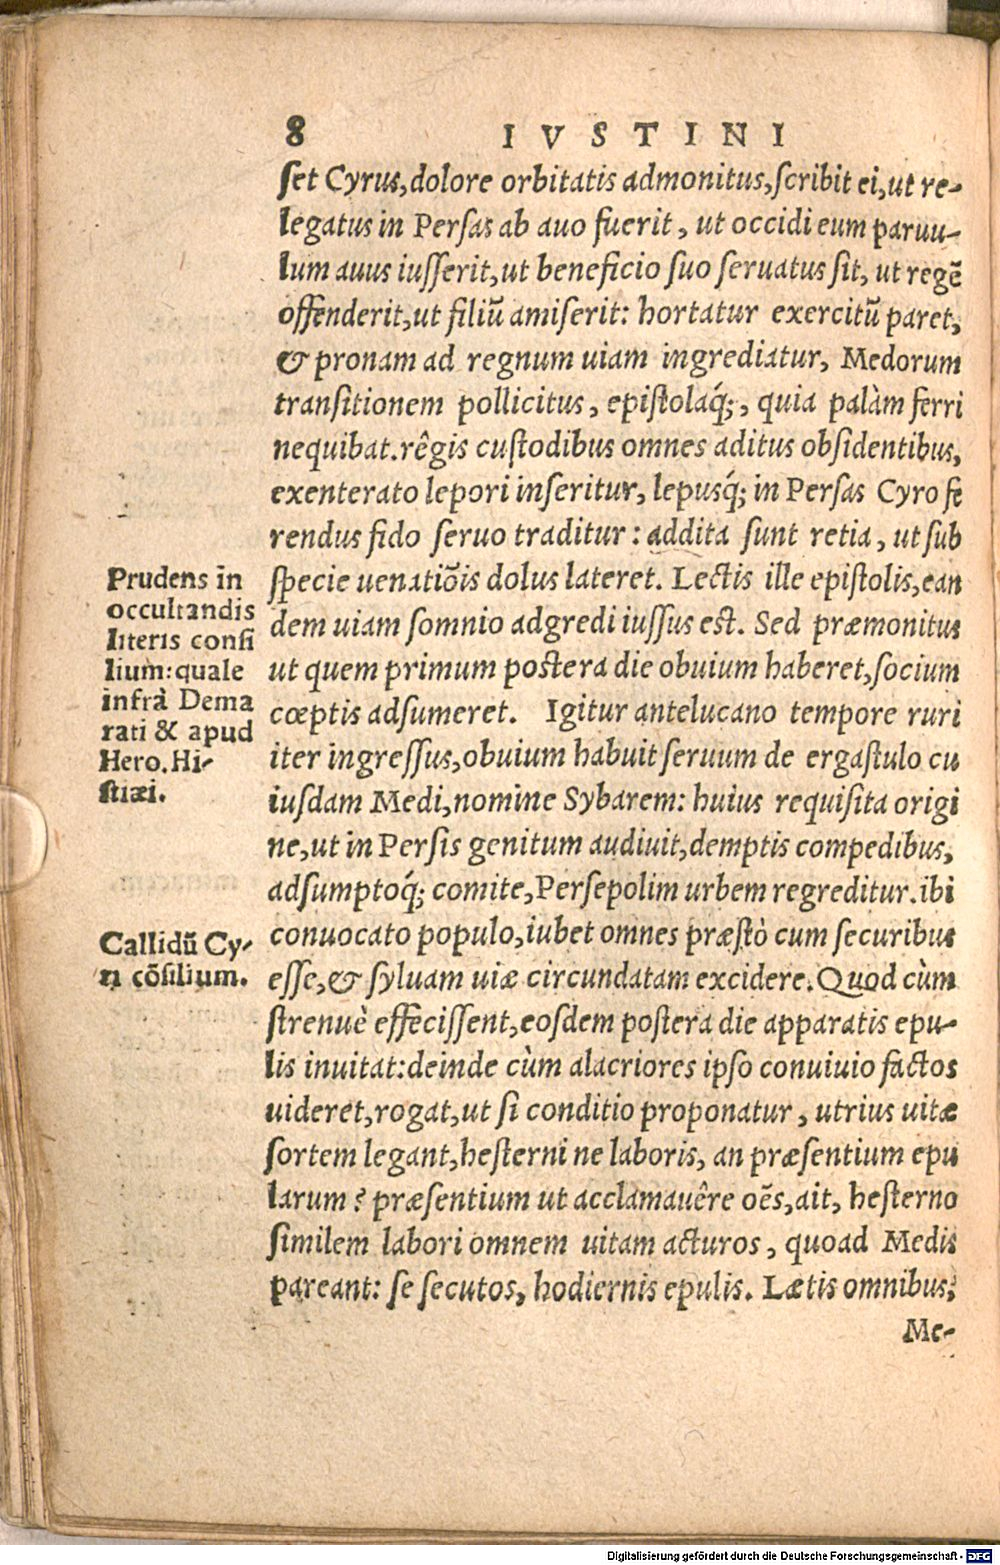 8 IVSTINI
ſet Cyrus, dolore orbitatis admonitus, ſcribit ei, ut re-
legatus in Perſas ab auo fuerit, ut occidi eum paruu-
lum auus iuſſerit, ut beneficio ſuo ſeruatus ſit, ut regē
offenderit, ut filiū amiſerit: hortatur exercitū paret,
& pronam ad regnum uiam ingrediatur, Medorum
tranſitionem pollicitus, epiſtolaq́;, quia palàm ferri
nequibat. rêgis cuſtodibus omnes aditus obſidentibus,
exenterato lepori inſeritur, lepusq́; in Perſas Cyro fe
rendus fido ſeruo traditur: addita ſunt retia, ut ſub
ſpecie uenatiōis dolus lateret. Lectis ille epiſtolis, ean
dem uiam ſomnio adgredi iuſſus eſt. Sed præmonitus
ut quem primum poſtera die obuium haberet, ſocium
cœptis adſumeret. Igitur antelucano tempore ruri
iter ingreſſus, obuium habuit ſeruum de ergaſtulo cu
iuſdam Medi, nomine Sybarem: huius requiſita origi
ne, ut in Perſis genitum audiuit, demptis compedibus,
adſumptoq́; comite, Perſepolim urbem regreditur. ibi
conuocato populo, iubet omnes præſtò cum ſecuribus
eſſe, & ſyluam uiæ circundatam excidere. Quod cùm
ſtrenuè effeciſſent, eoſdem poſtera die apparatis epu-
lis inuitat: deinde cùm alacriores ipſo conuiuio factos
uideret, rogat, ut ſi conditio proponatur, utrius uitæ
ſortem legant, heſterni ne laboris, an præſentium epu
larum? præſentium ut acclamauêre oēs, ait, heſterno
ſimilem labori omnem uitam acturos, quoad Medis
pareant: ſe ſecutos, hodiernis epulis. Lætis omnibus,
Me-
Prudens in
occultandis
literis conſi
lium: quale
infrà Dema
rati & apud
Hero. Hi-
ſtiæi.
Callidū Cy-
ri cōſilium.
Digitalisierung gefördert durch die Deutsche Forschungsgemeinschaft - DFG